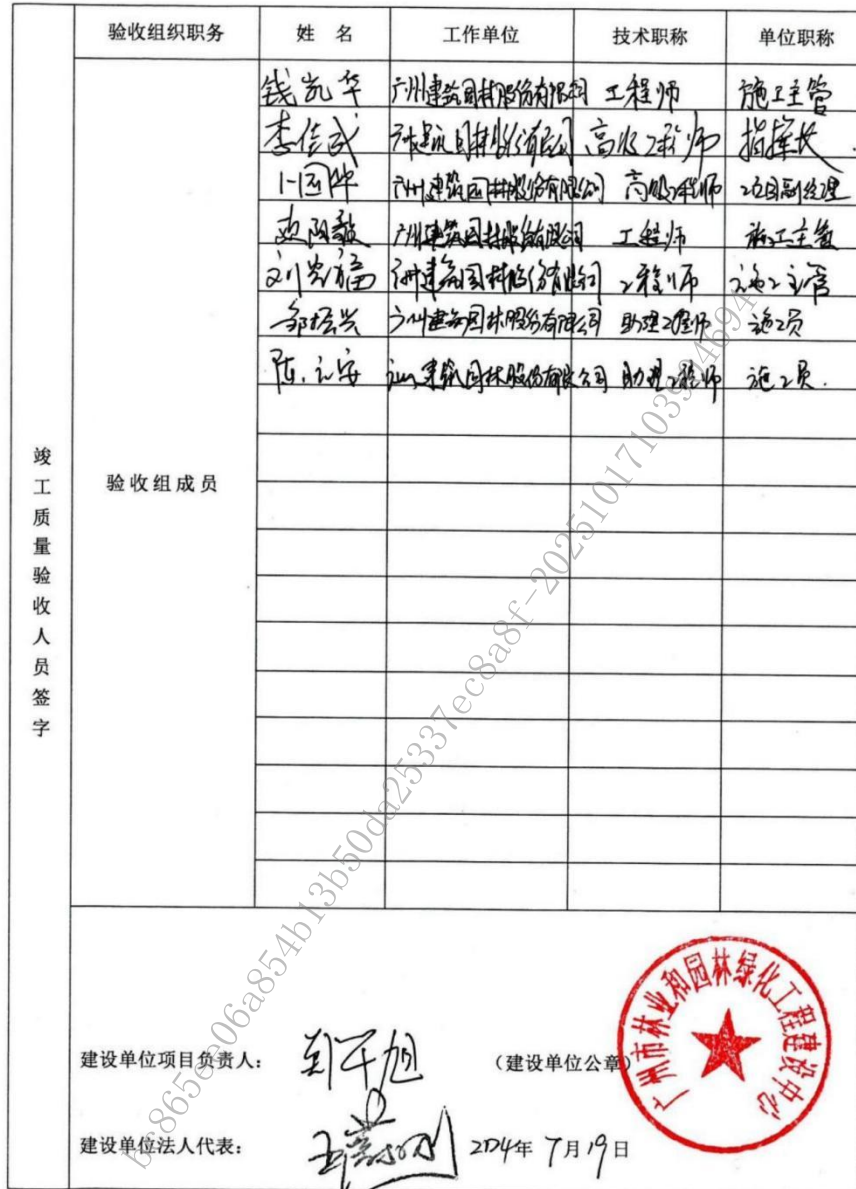 验收组织职务 姓 名 工作单位 技术职称 单位职称
钱凯华 广州建筑园林股份有限公司 工程师 施工主管
李信武 广州建筑园林股份有限公司 高级工程师 指挥长
卜国华 广州建筑园林股份有限公司 高级工程师 项目副经理
欧阳毅 广州建筑园林股份有限公司 工程师 施工主管
广州建筑园林股份有限公司 工程师 施工主管
邹振兴 广州建筑园林股份有限公司 助理工程师 施工员
广州建筑园林股份有限公司 助理工程师 施工员.
竣工质量验收人员签字
验收组成员
建设单位项目负责人: (建设单位公章)
建设单位法人代表: 2024年 7月19日
广州市林业和园林绿化工程建设中心
bc865ee06a854b13b50da25337ec8a8f-20251017103994694